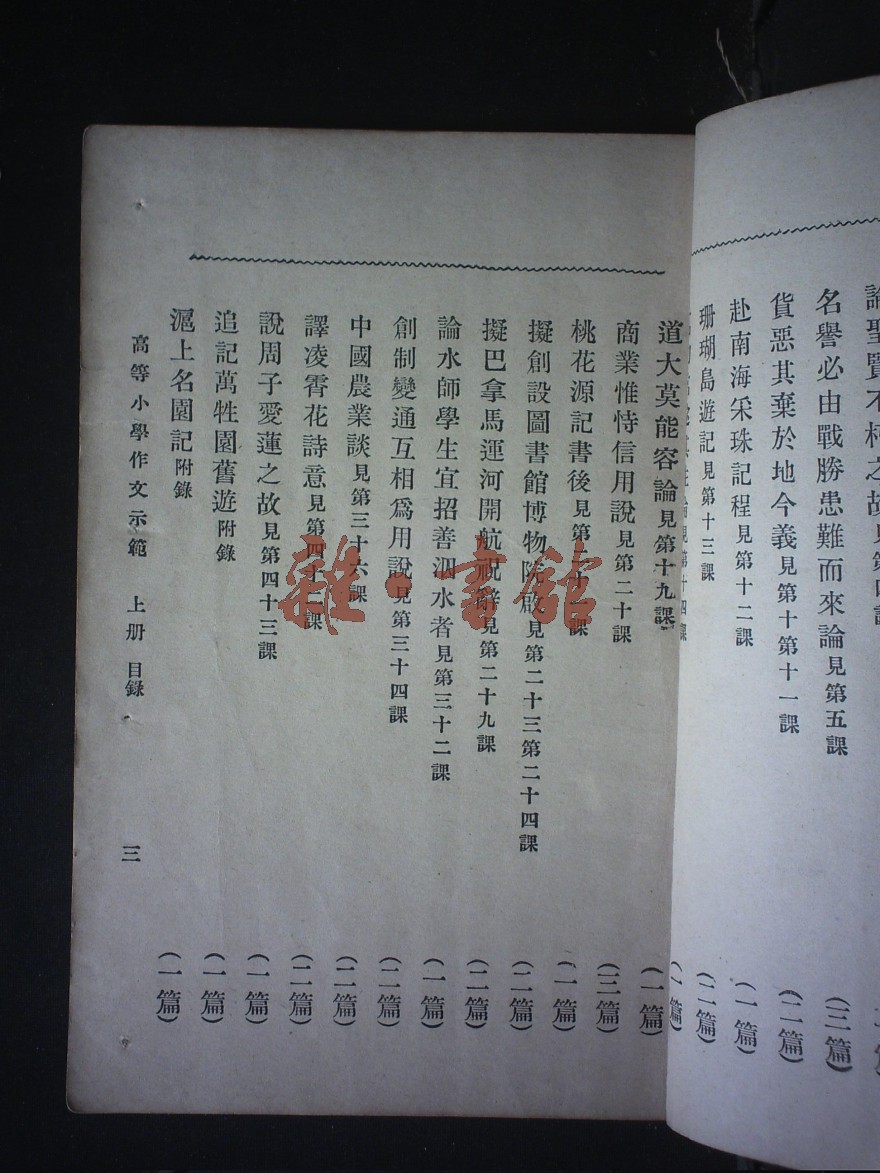 論聖賢不
之故
名譽必由戰勝患難而來論見第五課 (三篇)
貨惡其棄於地今義見第十第十一課 (二篇)
赴南海采珠記程見第十二課 (一篇)
珊瑚島遊記見第十三課 (二篇)
見第十四課 (一篇)
道大莫能容論見第十九課 (一篇)
商業惟恃信用說見第二十課 (三篇)
桃花源記書後見第 課 (一篇)
擬創設圖書館博物院啟見第二十三第二十四課 (二篇)
擬巴拿馬運河開航祝辭見第二十九課 (二篇)
論水師學生宜招善泅水者見第三十二課 (一篇)
創制變通互相爲用說見第三十四課 (二篇)
中國農業談見第三十六課 (二篇)
譯凌霄花詩意見第四十二課 (二篇)
說周子愛蓮之故見第四十三課 (一篇)
追記萬牲園舊遊附錄 (一篇)
滬上名園記附錄 (一篇)
高等小學作文示範 上册 目錄 三
雜·書館